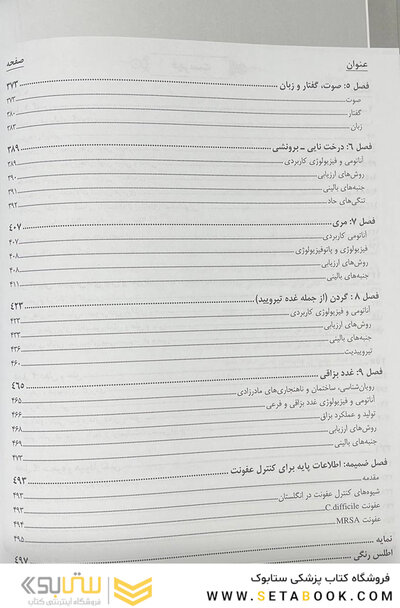 عنوان صفحه
فصل ۵: صوت، گفتار و زبان ۳۷۳
صوت ۳۷۳
گفتار ۳۸۰
زبان ۳۸۲
فصل ۶: درخت نایی ـ برونشی ۳۸۹
آناتومی و فیزیولوژی کاربردی ۳۸۹
روش‌های ارزیابی ۳۹۰
جنبه‌های بالینی ۳۹۱
تنگی‌های حاد ۳۹۲
فصل ۷: مری ۴۰۷
آناتومی کاربردی ۴۰۷
فیزیولوژی و پاتوفیزیولوژی ۴۰۸
روش‌های ارزیابی ۴۰۸
جنبه‌های بالینی ۴۱۱
فصل ۸: گردن (از جمله غده تیرویید) ۴۲۳
آناتومی و فیزیولوژی کاربردی ۴۲۳
روش‌های ارزیابی
جنبه‌های بالینی ۴۳۶
تیروییدیت ۴۶۰
فصل ۹: غدد بزاقی ۴۶۵
رویان‌شناسی، ساختمان و ناهنجاری‌های مادرزادی ۴۶۵
آناتومی و فیزیولوژی غدد بزاقی و فرعی ۴۶۶
تولید و عملکرد بزاق ۴۶۸
روش‌های ارزیابی ۴۶۹
جنبه‌های بالینی ۴۷۳
فصل ضمیمه: اطلاعات پایه برای کنترل عفونت ۴۹۳
مقدمه ۴۹۳
شیوه‌های کنترل عفونت در انگلستان ۴۹۳
عفونت C.difficile ۴۹۴
عفونت MRSA ۴۹۵
نمایه
اطلس رنگی ۴۹۷
فروشگاه کتاب پزشکی ستابوک
WWW.SETABOOK.COM
ستابوک
فروشگاه اینترنتی کتاب